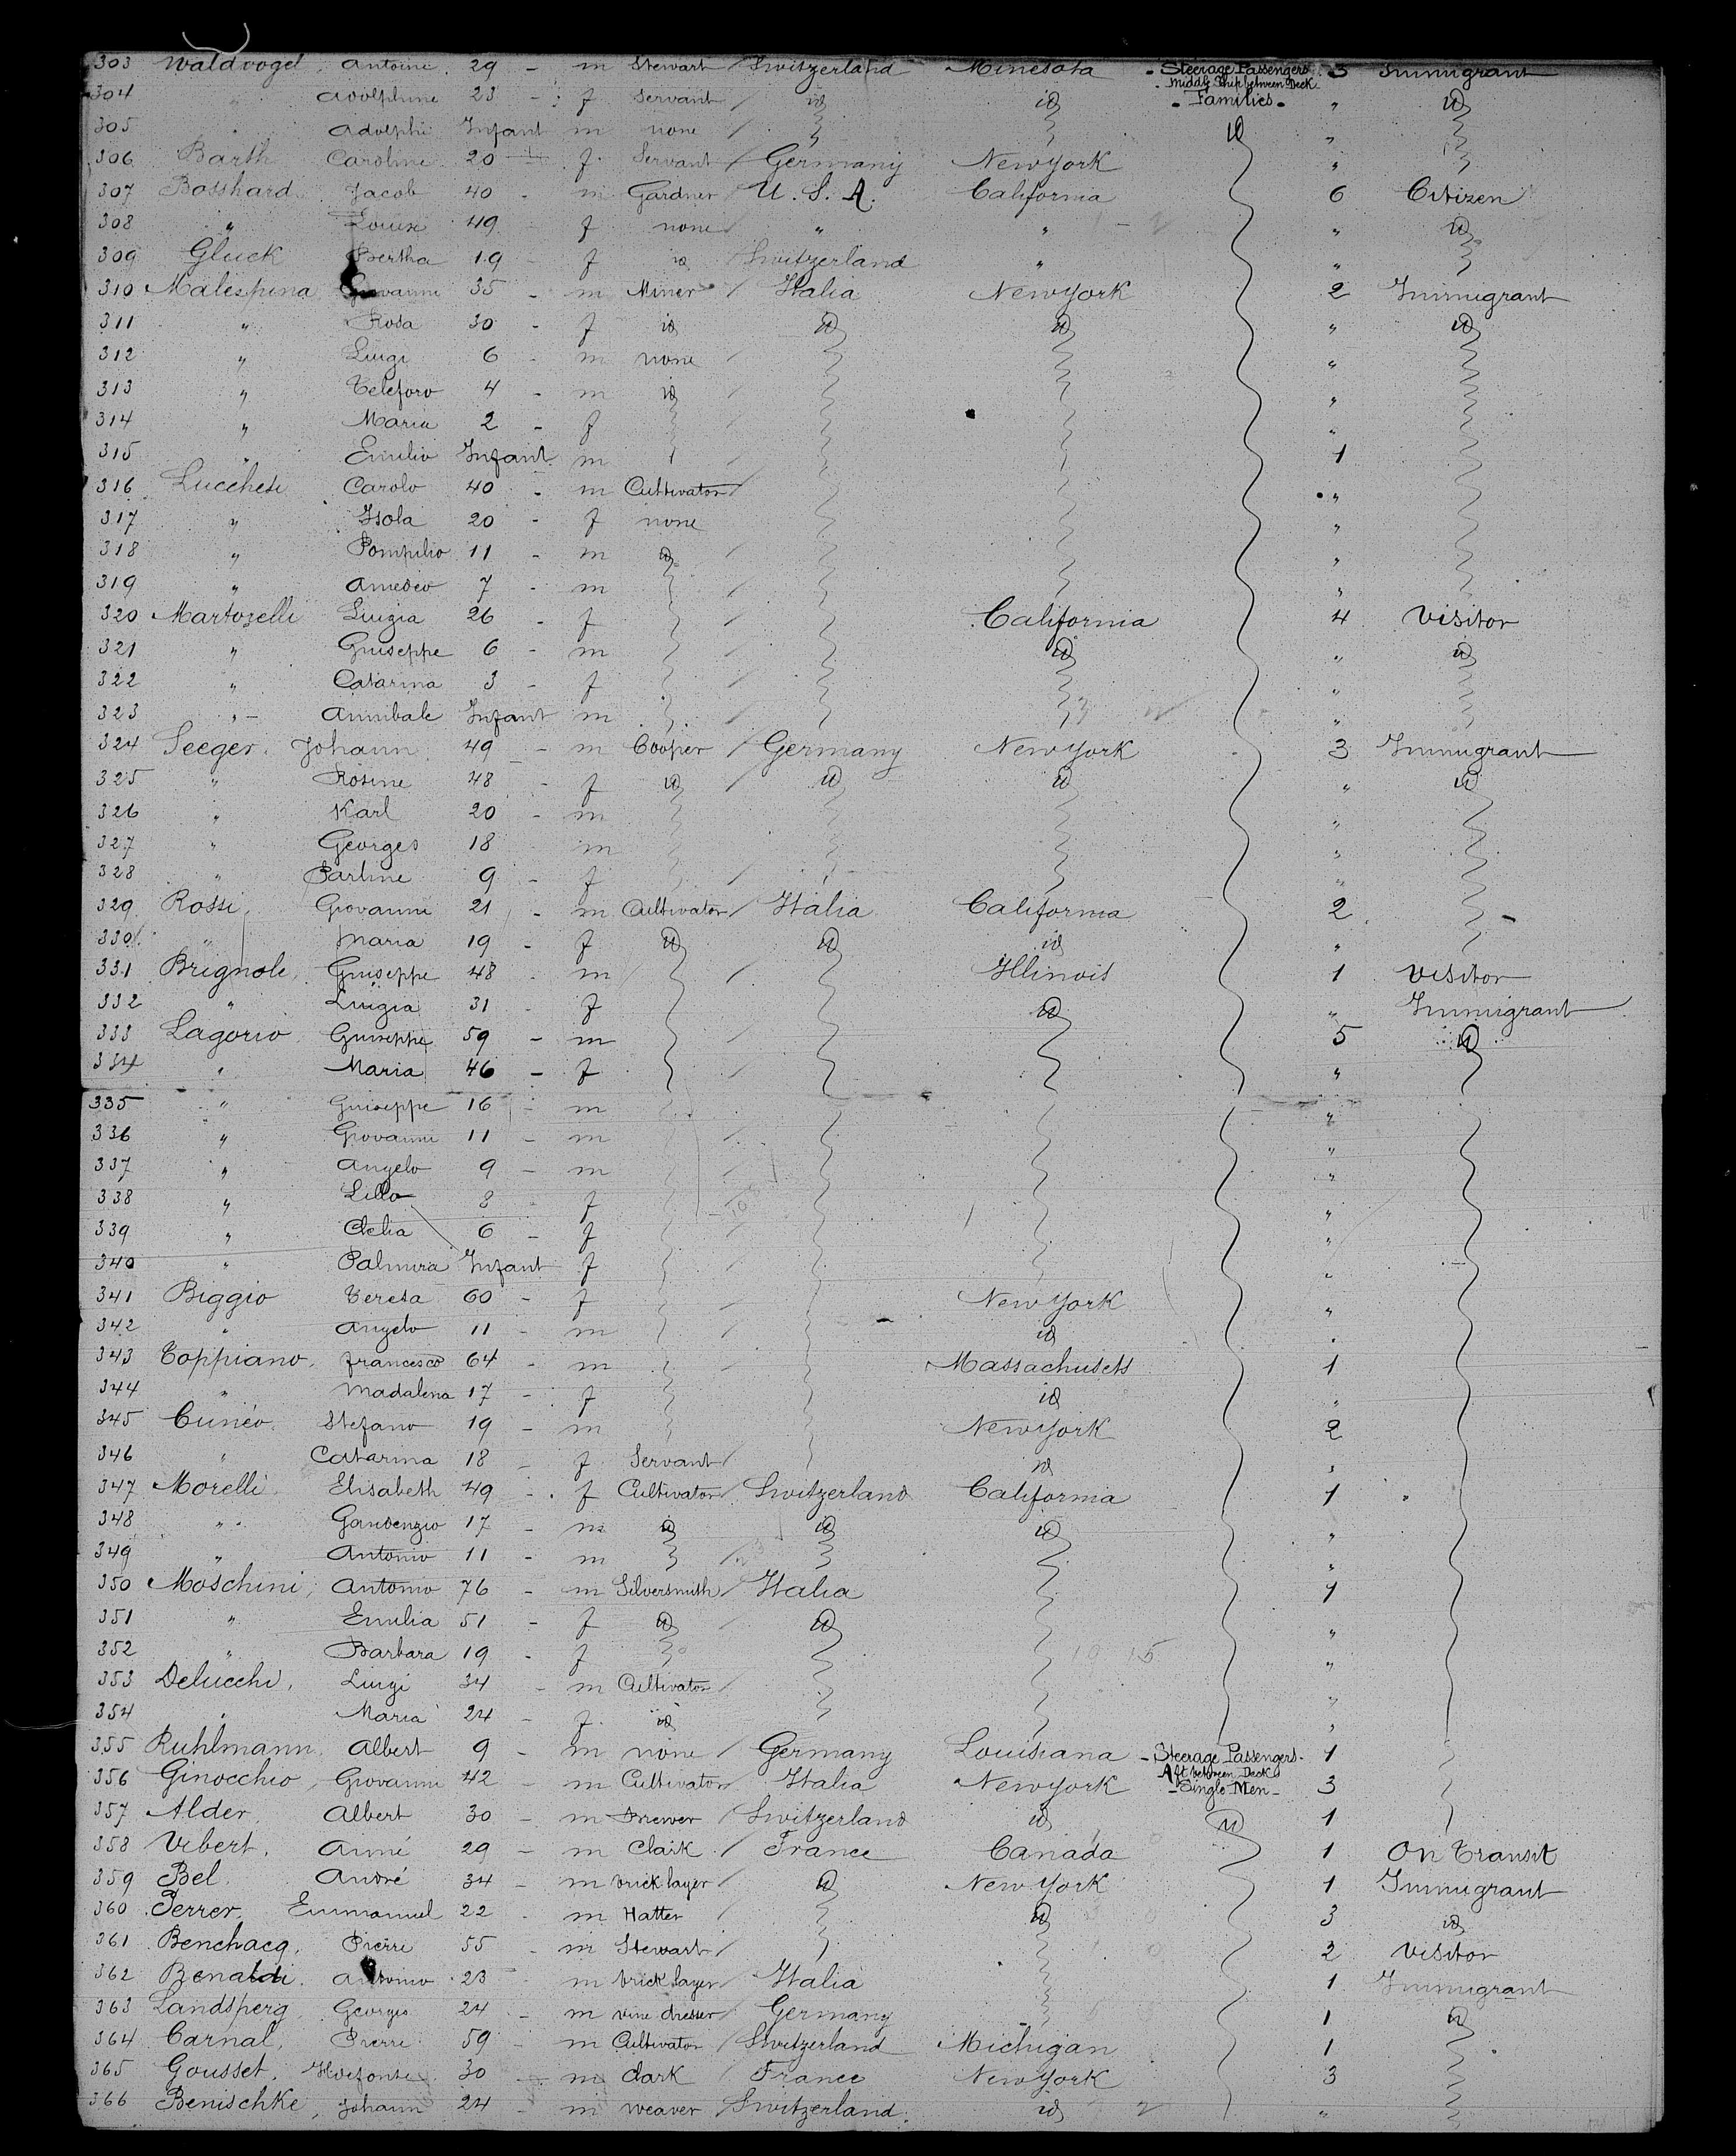 303 Waldvogel, Antoine 29 - m Stewart / Switzerland Minesota - Steerage Passengers 3 Immigrant
- Middle Ship between Deck
304 " Adolphine 23 - f Servant / id id - Families - " id
305 " Adolphe Infant m none / id "
306 Barth Caroline 20 - f Servant / Germany New York "
307 Bosshard Jacob 40 - m Gardner U. S. A. California 6 Citizen
308 " Louise 49 - f none " " " id
309 Gluck Bertha 19 - f id Switzerland " "
310 Malespina Giovanni 35 - m Miner / Italia New York 2 Immigrant
311 " Rosa 30 - f id id id " id
312 " Luigi 6 - m none / "
313 " Teleforo 4 - m id / "
314 " Maria 2 - f "
315 " Emilio Infant m / 1
316 Lucchesi Carolo 40 - m Cultivator / "
317 " Isola 20 - f none "
318 " Pompilio 11 - m id / "
319 " Amedeo 7 - m / "
320 Martoselli Luigia 26 - f California 4 Visitor
321 " Guiseppe 6 - m / id " id
322 " Catarina 3 - f / "
323 " - Annibale Infant m / "
324 Seeger, Johann 49 - m Cooper / Germany New York 3 Immigrant
325 " Rosine 48 - f id / id id " id
326 " Karl 20 - m "
327 " Georges 18 - m "
328 " Parline 9 - f / "
329 Rossi, Giovanni 21 - m Cultivator / Italia California 2
330 " Maria 19 - f id id id "
331 Brignole, Guiseppe 48 - m / Illinois 1 Visitor
332 " Luigia 31 - f id " Immigrant
333 Lagorio Guiseppe 59 - m / 5 id
334 " Maria 46 - f / "
335 " Guiseppe 16 - m "
336 " Giovanni 11 - m / "
337 " Angelo 9 - m / "
338 " Lilla 8 - f "
339 " Clelia 6 - f / "
340 " Palmira Infant f / "
341 Biggio Teresa 60 - f / New York "
342 " Angelo 11 - m / id "
343 Toppiano, Francesco 64 - m / Massachusets 1
344 " Madalena 17 - f id "
345 Cuneo, Stefano 19 - m / New York 2
346 " Catarina 18 - f Servant / id "
347 Morelli Elisabeth 49 - f Cultivator / Switzerland California 1
348 " Gaudenzio 17 - m id id id "
349 " Antonio 11 - m / "
350 Moschini, Antonio 76 - m Silversmith / Italia 1
351 " Emilia 51 - f id id "
352 " Barbara 19 - f "
353 Delucchi, Luigi 34 - m Cultivator / "
354 " Maria 24 - f id "
355 Ruhlmann, Albert 9 - m none / Germany Louisiana - Steerage Passengers - 1
Aft between Deck
356 Ginocchio, Giovanni 42 - m Cultivator / Italia New York - Single Men - 3
357 Alder, Albert 30 - m Brewer / Switzerland id id 1
358 Vibert, Aimé 29 - m Clark / France Canada 1 On Transit
359 Bel, André 34 - m bricklayer / id New York 1 Immigrant
360 Perrer, Emmanuel 22 - m Hatter / id 3 id
361 Benchacq, Pierre 55 - m Stewart / 2 Visitor
362 Benaldi, Antonio 23 - m bricklayer / Italia 1 Immigrant
363 Landsperg, Georges 24 - m vine dresser / Germany 1 id
364 Carnal, Pierre 59 - m Cultivator / Switzerland Michigan 1
365 Gousset, Ildefonse 30 - m Clark / France New York 3
366 Benischke, Johann 24 - m weaver / Switzerland id "